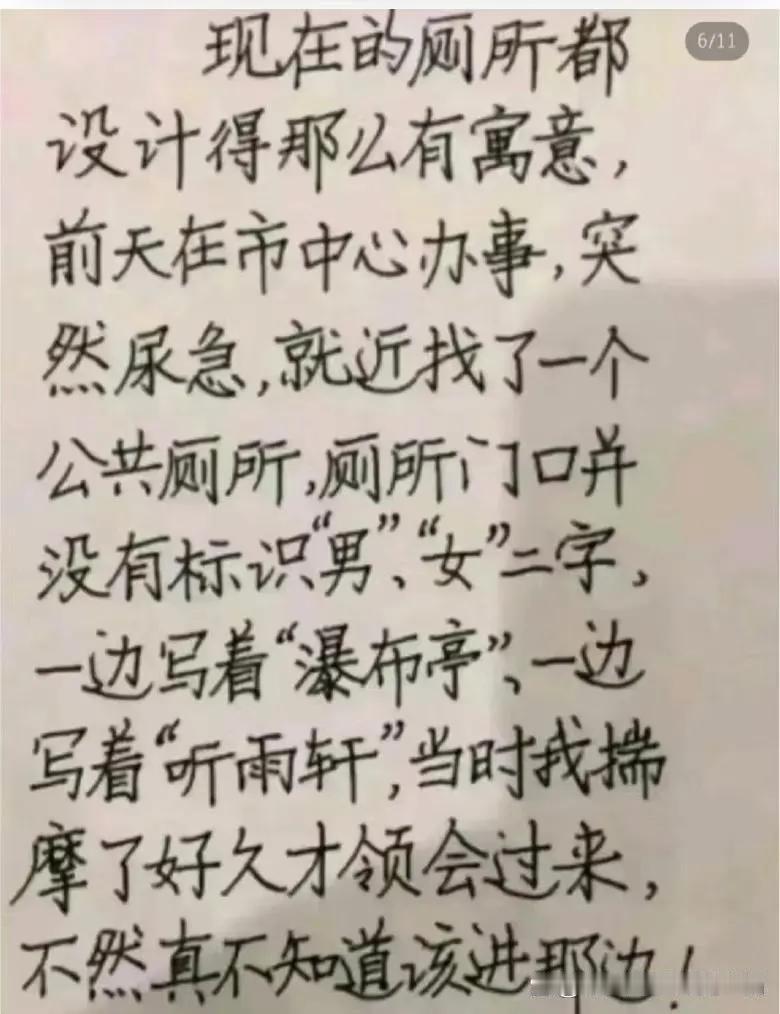 现在的厕所都
6/11
设计得那么有寓意,
前天在市中心办事,突
然尿急,就近找了一个
公共厕所,厕所门口并
没有标识“男”、“女”二字,
一边写着“瀑布亭”、一边
写着“听雨轩”,当时我揣
摩了好久才领会过来,
不然真不知道该进那边!